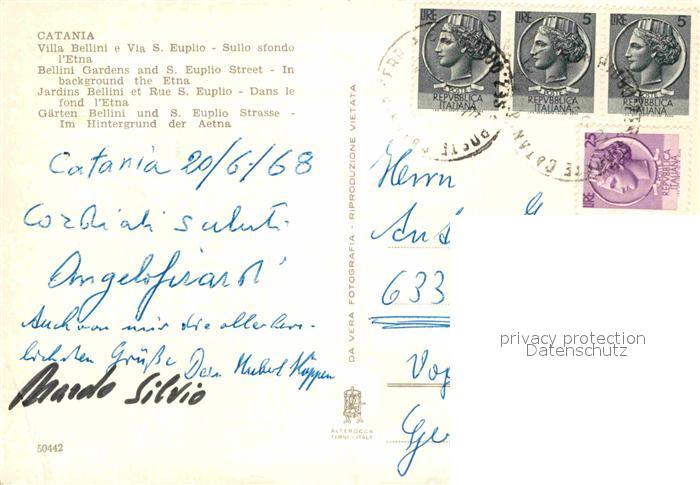 CATANIA
Villa Bellini e Via S. Euplio - Sullo sfondo
l'Etna
Bellini Gardens and S. Euplio Street - In
background the Etna
Jardins Bellini et Rue S. Euplio - Dans le
fond l'Etna
Gärten Bellini und S. Euplio Strasse -
Im Hintergrund der Aetna
Catania 20/6/68
Cordiali saluti
Auch von mir die allerherz-
lichsten Grüße Dein Hubert
Silvio
50442
DA VERA FOTOGRAFIA - RIPRODUZIONE VIETATA
ALTEROCCA
TERNI - ITALY
LIRE 5
POSTE
REPVBBLICA
ITALIANA
LIRE 5
POSTE
REPVBBLICA
ITALIANA
LIRE 5
POSTE
REPVBBLICA
ITALIANA
LIRE 25
POSTE
REPVBBLICA
ITALIANA
Herrn
633
privacy protection
Datenschutz